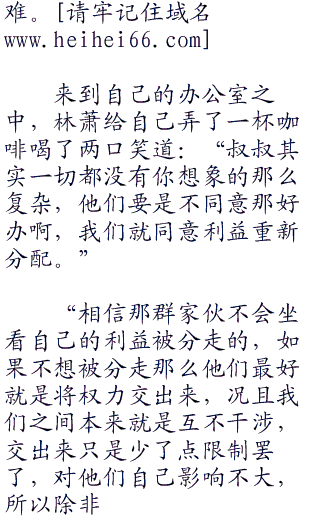 难。[请牢记住域名
www.heihei66.com]
来到自己的办公室之
中，林萧给自己弄了一杯咖
啡喝了两口笑道：“叔叔其
实一切都没有你想象的那么
复杂，他们要是不同意那好
办啊，我们就同意利益重新
分配。”
“相信那群家伙不会坐
看自己的利益被分走的，如
果不想被分走那么他们最好
就是将权力交出来，况且我
们之间本来就是互不干涉，
交出来只是少了点限制罢
了，对他们自己影响不大，
所以除非